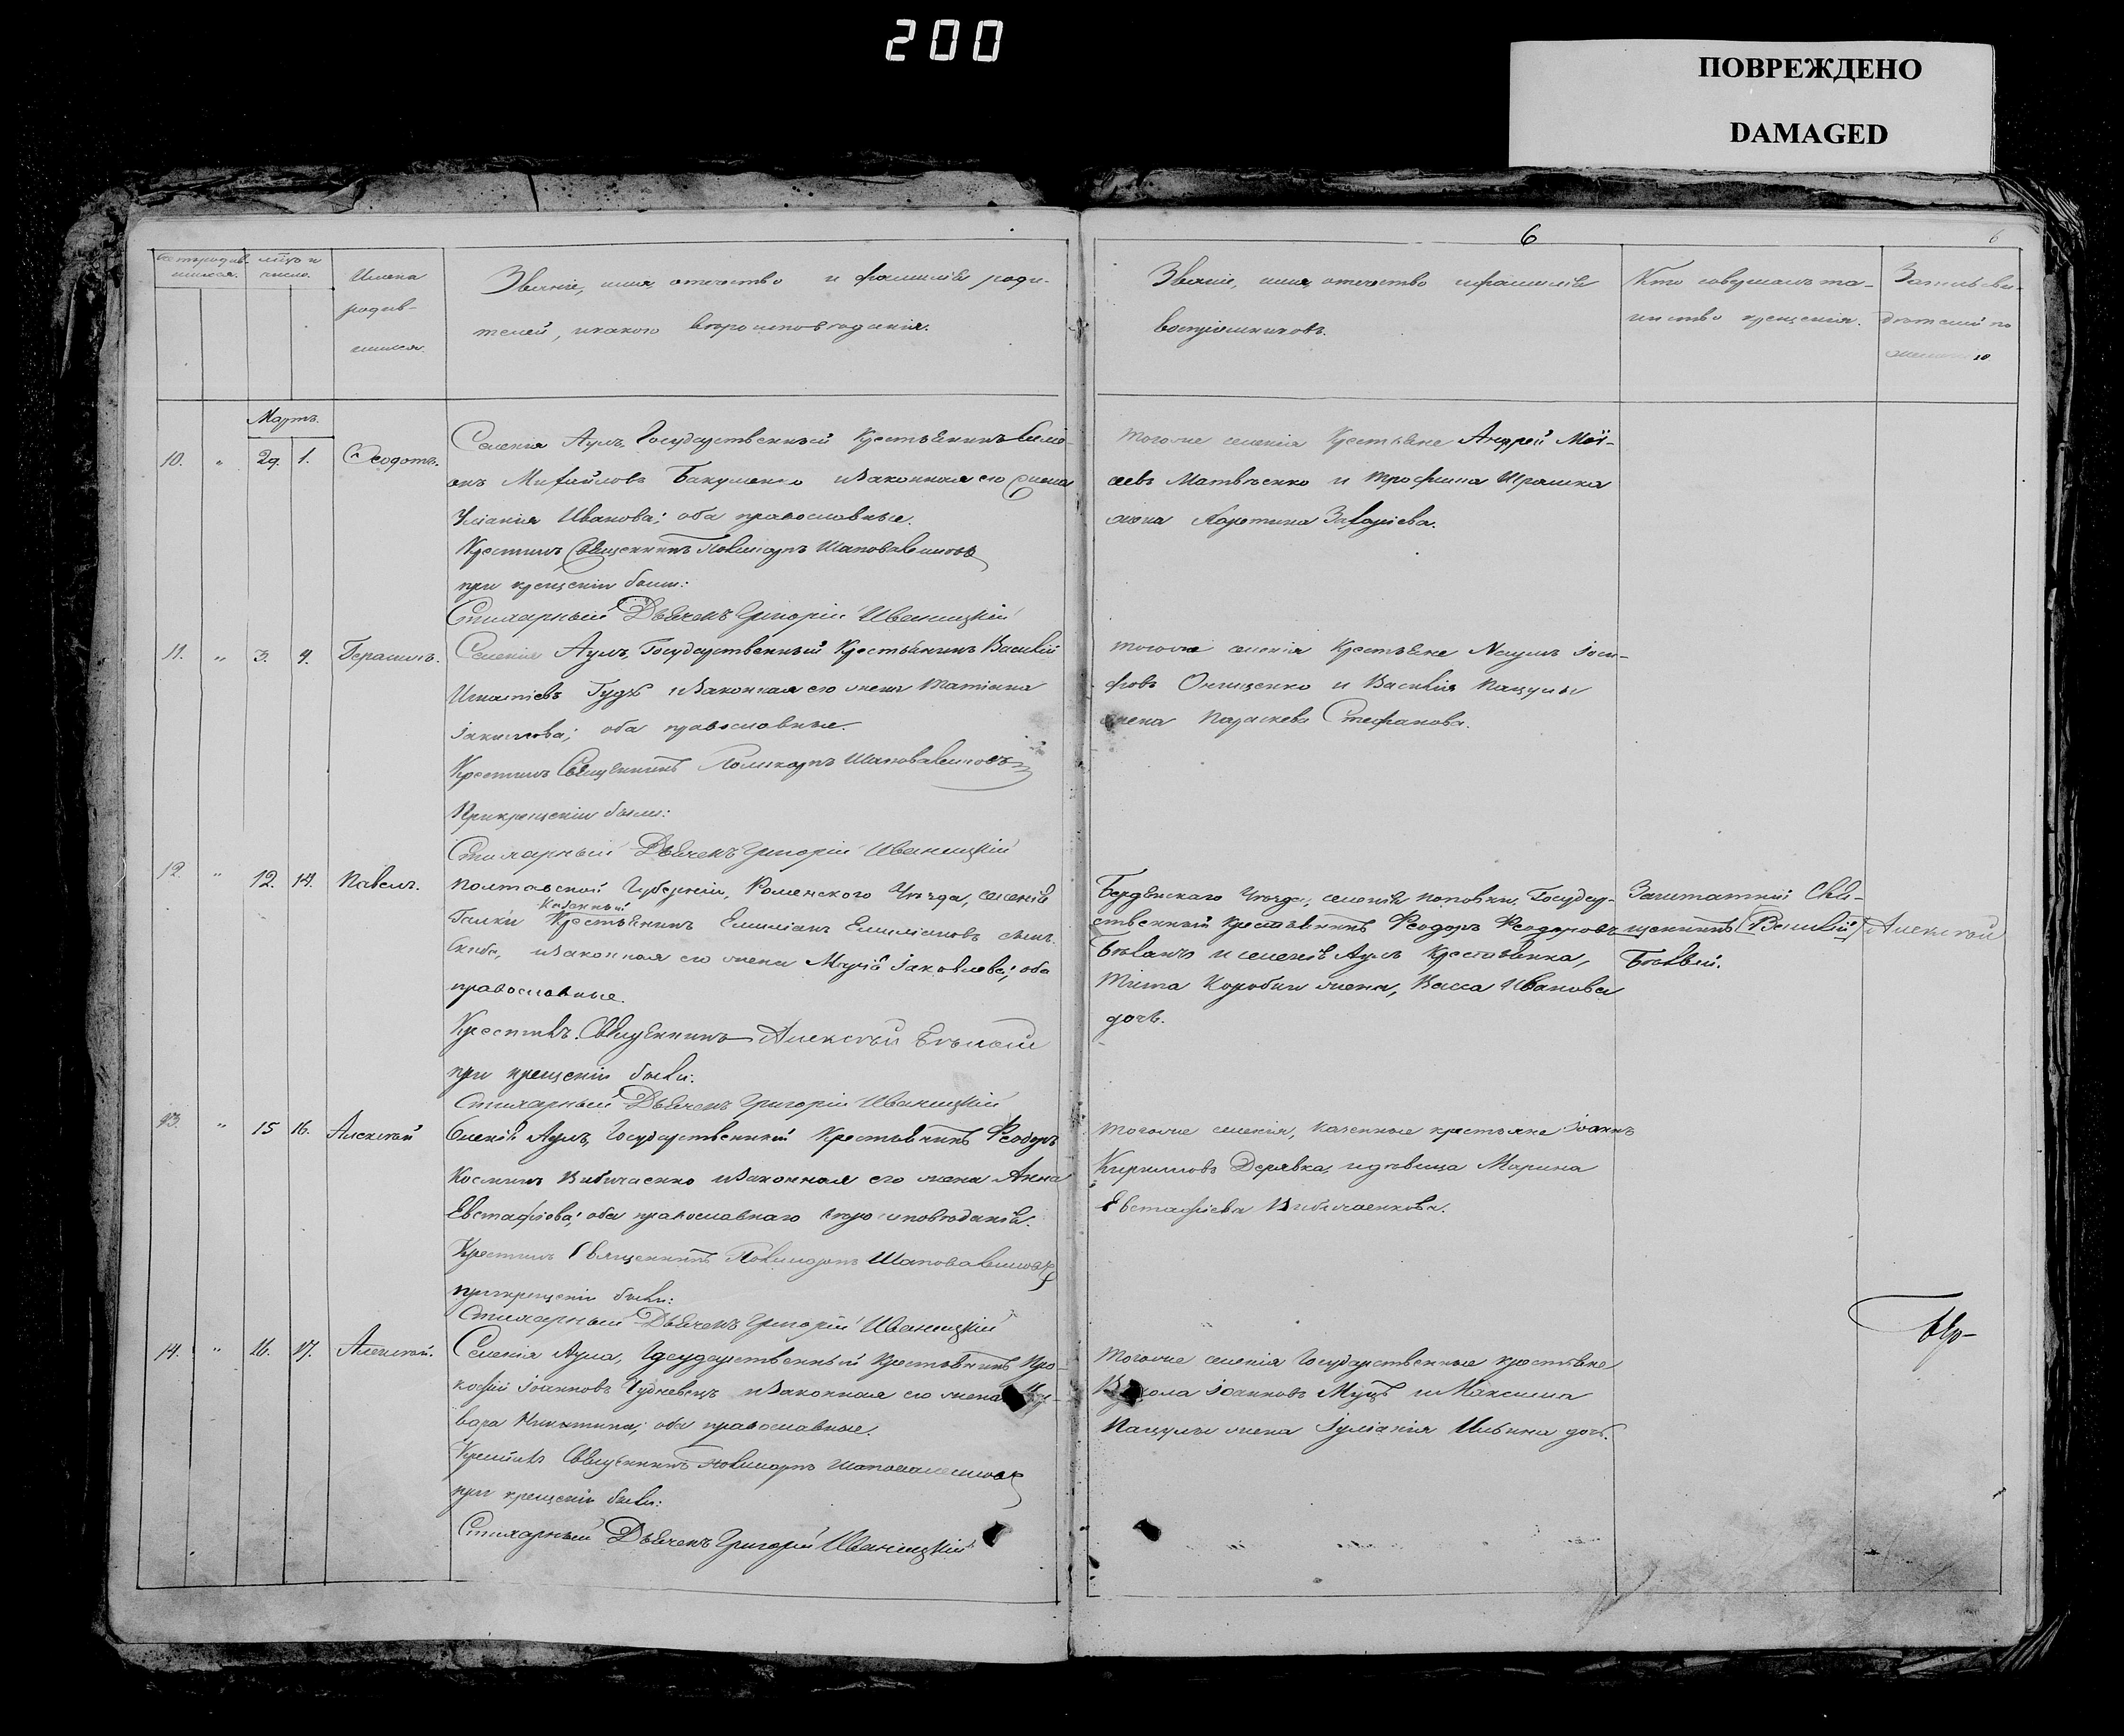 200
ПОВРЕЖДЕНО
DAMAGED
6
6
Имена
родив-
шихся.
Званіе, имя, отечество и фамилія роди-
телей, и какого вѣроисповѣданія.
Званіе, имя, отечество и фамилія
воспріемниковъ.
Кто совершалъ та-
инство крещенія.
Мартъ.
10. " 29. 1. Ѳеодотъ.
Селенія Аулъ, Государственный Крестьянинъ Симе-
онъ Михайловъ Бакуменко и законная его жена
Уліанія Иванова; оба православные.
Крестилъ Священникъ Поликарпъ Шаповаленковъ
при крещеніи были:
Стихарный Дьячекъ Григорій Иваницкій
тогоже селенія Крестьяне Андрей Мої-
сеевъ Матвѣенко и Трофима
жена Захаріева.
11. " 3. 4. Герасимъ.
Селенія Аулъ, Государственный Крестьянинъ Василій
Игнатіевъ Гудъ и законная его жена Татіана
Іакимова; оба православные.
Крестилъ Священникъ Поликарпъ Шаповаленковъ
При крещеніи были:
Стихарный Дьячекъ Григорій Иваницкій
тогоже селенія Крестьяне Наумъ Іоси-
фовъ Онищенко и Василія Пацулы
жена Параскева Стефанова.
12. " 12. 14. Павелъ.
Полтавской Губерніи, Роменского Уѣзда, селенія
Галки Казенный Крестьянинъ Емиліанъ Емиліановъ сынъ
Скиба, и законная его жена Марія Іаковлева; оба
православные.
Крестилъ Священникъ Алексѣй Бѣлый
при крещеніи были:
Стихарный Дьячекъ Григорій Иваницкій
Бердянскаго Уѣзда, селенія Поповки, Государ-
ственный крестьянинъ Ѳеодоръ Ѳеодоровъ
Бѣланъ и селенія Аулъ Крестьянка,
Тита Коробки жена, Васса Иванова
дочь.
Заштатный Свя-
щенникъ (Василій) Алексѣй
Бѣлый.
13. " 15 16. Алексѣй
Селенія Аулъ, Государственный Крестьянинъ Ѳеодоръ
Косминъ Вибиченко и законная его жена Анна
Евстафіева; оба православнаго вѣроисповѣданія.
Крестилъ Священникъ Поликарпъ Шаповаленковъ
при крещеніи были:
Стихарный Дьячекъ Григорій Иваницкій
тогоже селенія, казенные крестьяне Іоаннъ
Кирилловъ Дерявка, и дѣвица Марина
Евстафіева Вибиченкова.
14. " 16. 17. Алексѣй.
Селенія Аула, Государственный Крестьянинъ Про-
кофій Іоанновъ Чудневецъ и законная его жена
вара Никитина; оба православные.
Крестилъ Священникъ Поликарпъ Шаповаленковъ
при крещеніи были:
Стихарный Дьячекъ Григорій Иваницкій
тогоже селенія Государственные крестьяне
Іоанновъ Муцъ и Максима
Пацулы жена Іуліанія Ильина дочь.